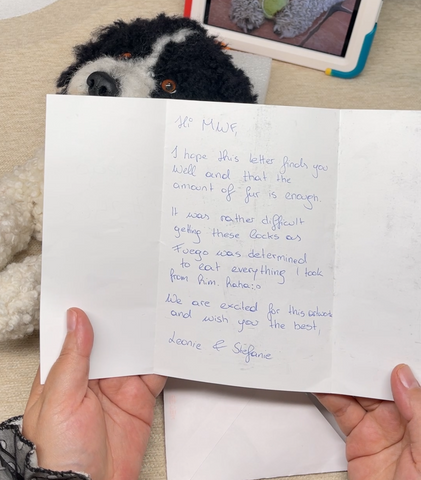 Hi MWF,
I hope this letter finds you
well and that the
amount of fur is enough.
It was rather difficult
getting these locks as
Fuego was determined
to eat everything I took
from him. haha :o
We are excited for this
and wish you the best,
Leonie & Stefanie